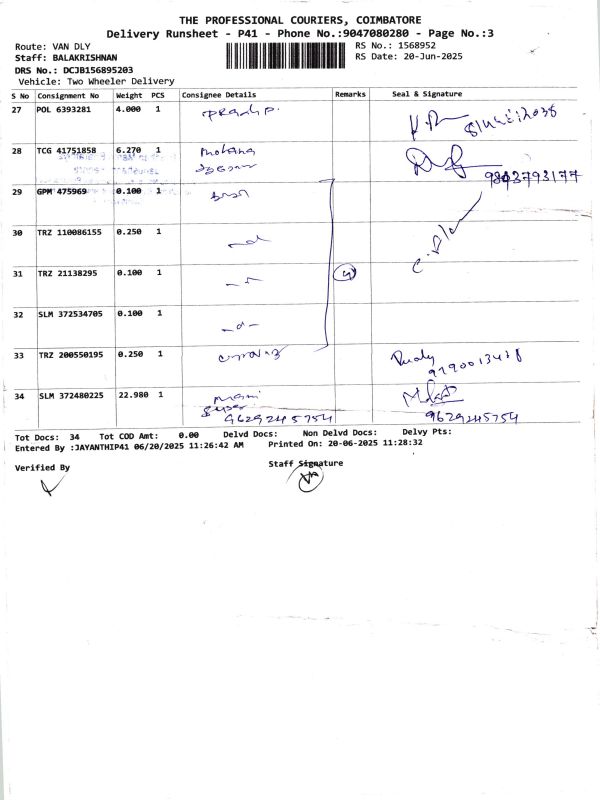 THE PROFESSIONAL COURIERS, COIMBATORE
Delivery Runsheet - P41 - Phone No.:9047080280 - Page No.:3
Route: VAN DLY
RS No.: 1568952
Staff: BALAKRISHNAN
RS Date: 20-Jun-2025
DRS No.: DCJB156895203
Vehicle: Two Wheeler Delivery
S No Consignment No Weight PCS Consignee Details Remarks Seal & Signature
27 POL 6393281 4.000 1
28 TCG 41751858 6.270 1
9843793177
29 GPM 475969 0.100 1
30 TRZ 110086155 0.250 1
31 TRZ 21138295 0.100 1
32 SLM 372534705 0.100 1
33 TRZ 200550195 0.250 1
34 SLM 372480225 22.980 1 mani
9629245754 9629245754
Tot Docs: 34 Tot COD Amt: 0.00 Delvd Docs: Non Delvd Docs: Delvy Pts:
Entered By :JAYANTHIP41 06/20/2025 11:26:42 AM Printed On: 20-06-2025 11:28:32
Verified By
Staff Signature